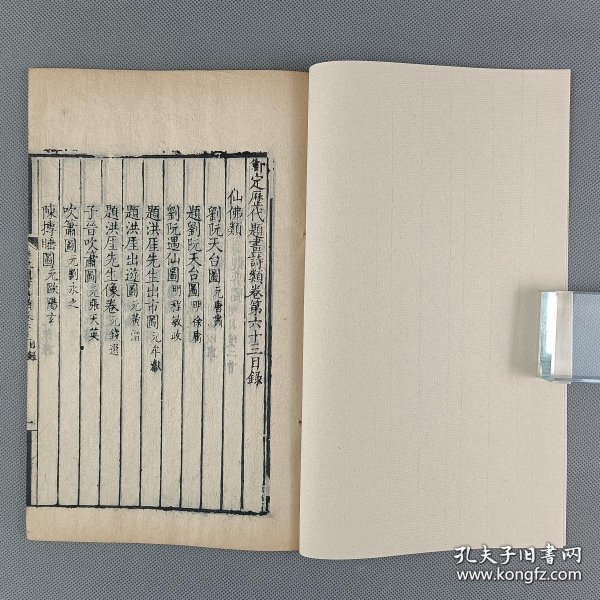 御定歷代題畫詩類卷第六十三目錄
仙佛類
劉阮天台圖 元唐肅
題劉阮天台圖 明徐庸
劉阮遇仙圖 明程敏政
題洪厓先生出市圖 元牟巘
題洪厓出遊圖 元黃溍
題洪厓先生像卷 元錢選
子晉吹簫圖 元張天英
吹簫圖 元劉永之
陳摶睡圖 元歐陽玄
目錄
一
孔夫子旧书网
www.kongfz.com